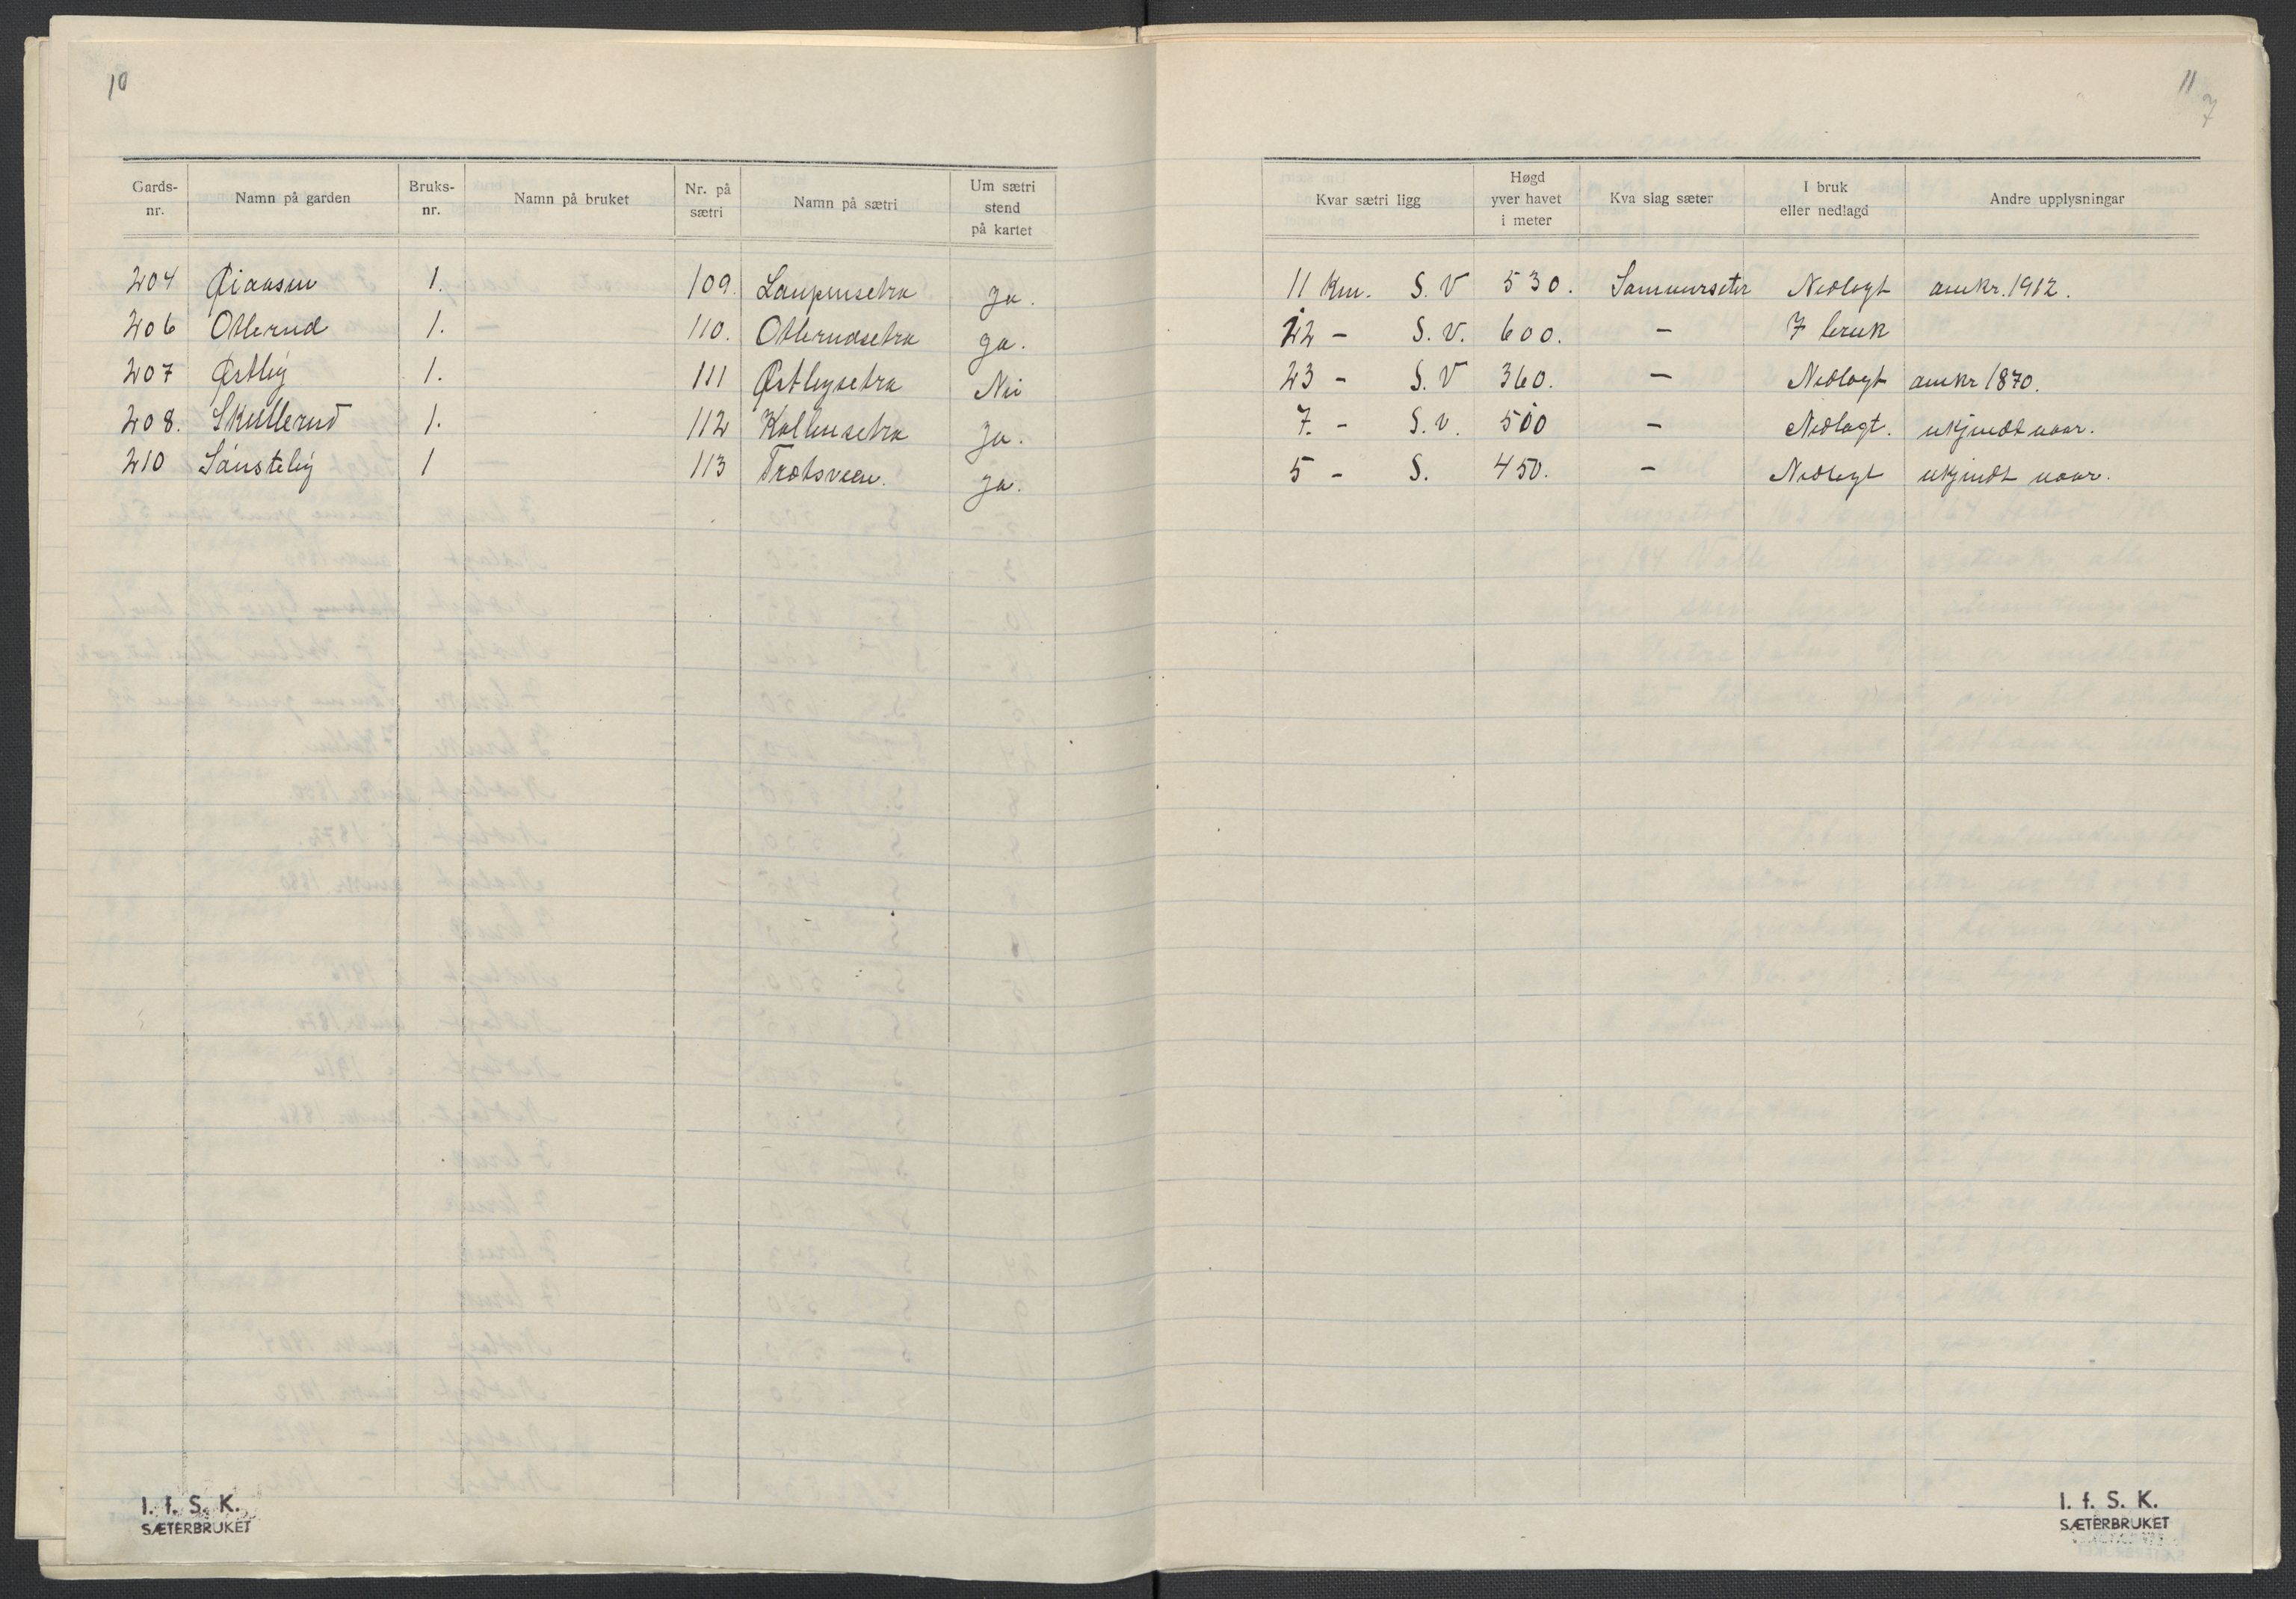 10
Gards-nr. Namn på garden Bruks-nr. Namn på bruket Nr. på sætri Namn på sætri Um sætri stend på kartet
204 Øiaasen 1. 109. Laupensetra ja.
206 Otterud 1. 110. Otterudsetra ja.
207 Østlig 1. 111 Østligsetra Nei
208. Skullerud 1. 112 Kollensetra ja.
210 Sansteliĝ 1 113 Trotsveen. ja.
I. f. S. K.
SÆTERBRUKET
11
7
Kvar sætri ligg Høgd yver havet i meter Kva slag sæter I bruk eller nedlagd Andre upplysningar
11 Km. S. V 530. Sommerseter Nedlagt omkr. 1912.
22 - S. V. 600. - I bruk
23 - S. V 360. - Nedlagt omkr 1870.
7. - S. V. 500 - Nedlagt. ukjendt naar.
5 - S. 450. - Nedlagt ukjendt naar.
I. f. S. K.
SÆTERBRUKET